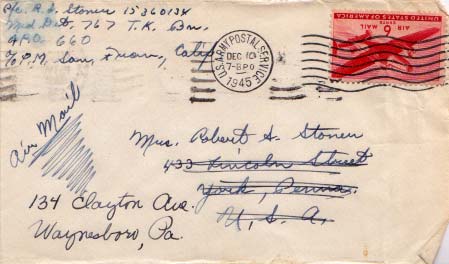 Pfc. R. S. Stoner 15360134
Med. Det. 767 T.K. Bn.
A.P.O. 660
c/o P.M. San Fran, Calif
U.S. ARMY POSTAL SERVICE
DEC 10
1945
UNITED STATES OF AMERICA
6 CENTS
AIR MAIL
Air Mail
Mrs. Robert S. Stoner
433 Lincoln Street
York, Penna.
U.S.A.
134 Clayton Ave.
Waynesboro, Pa.